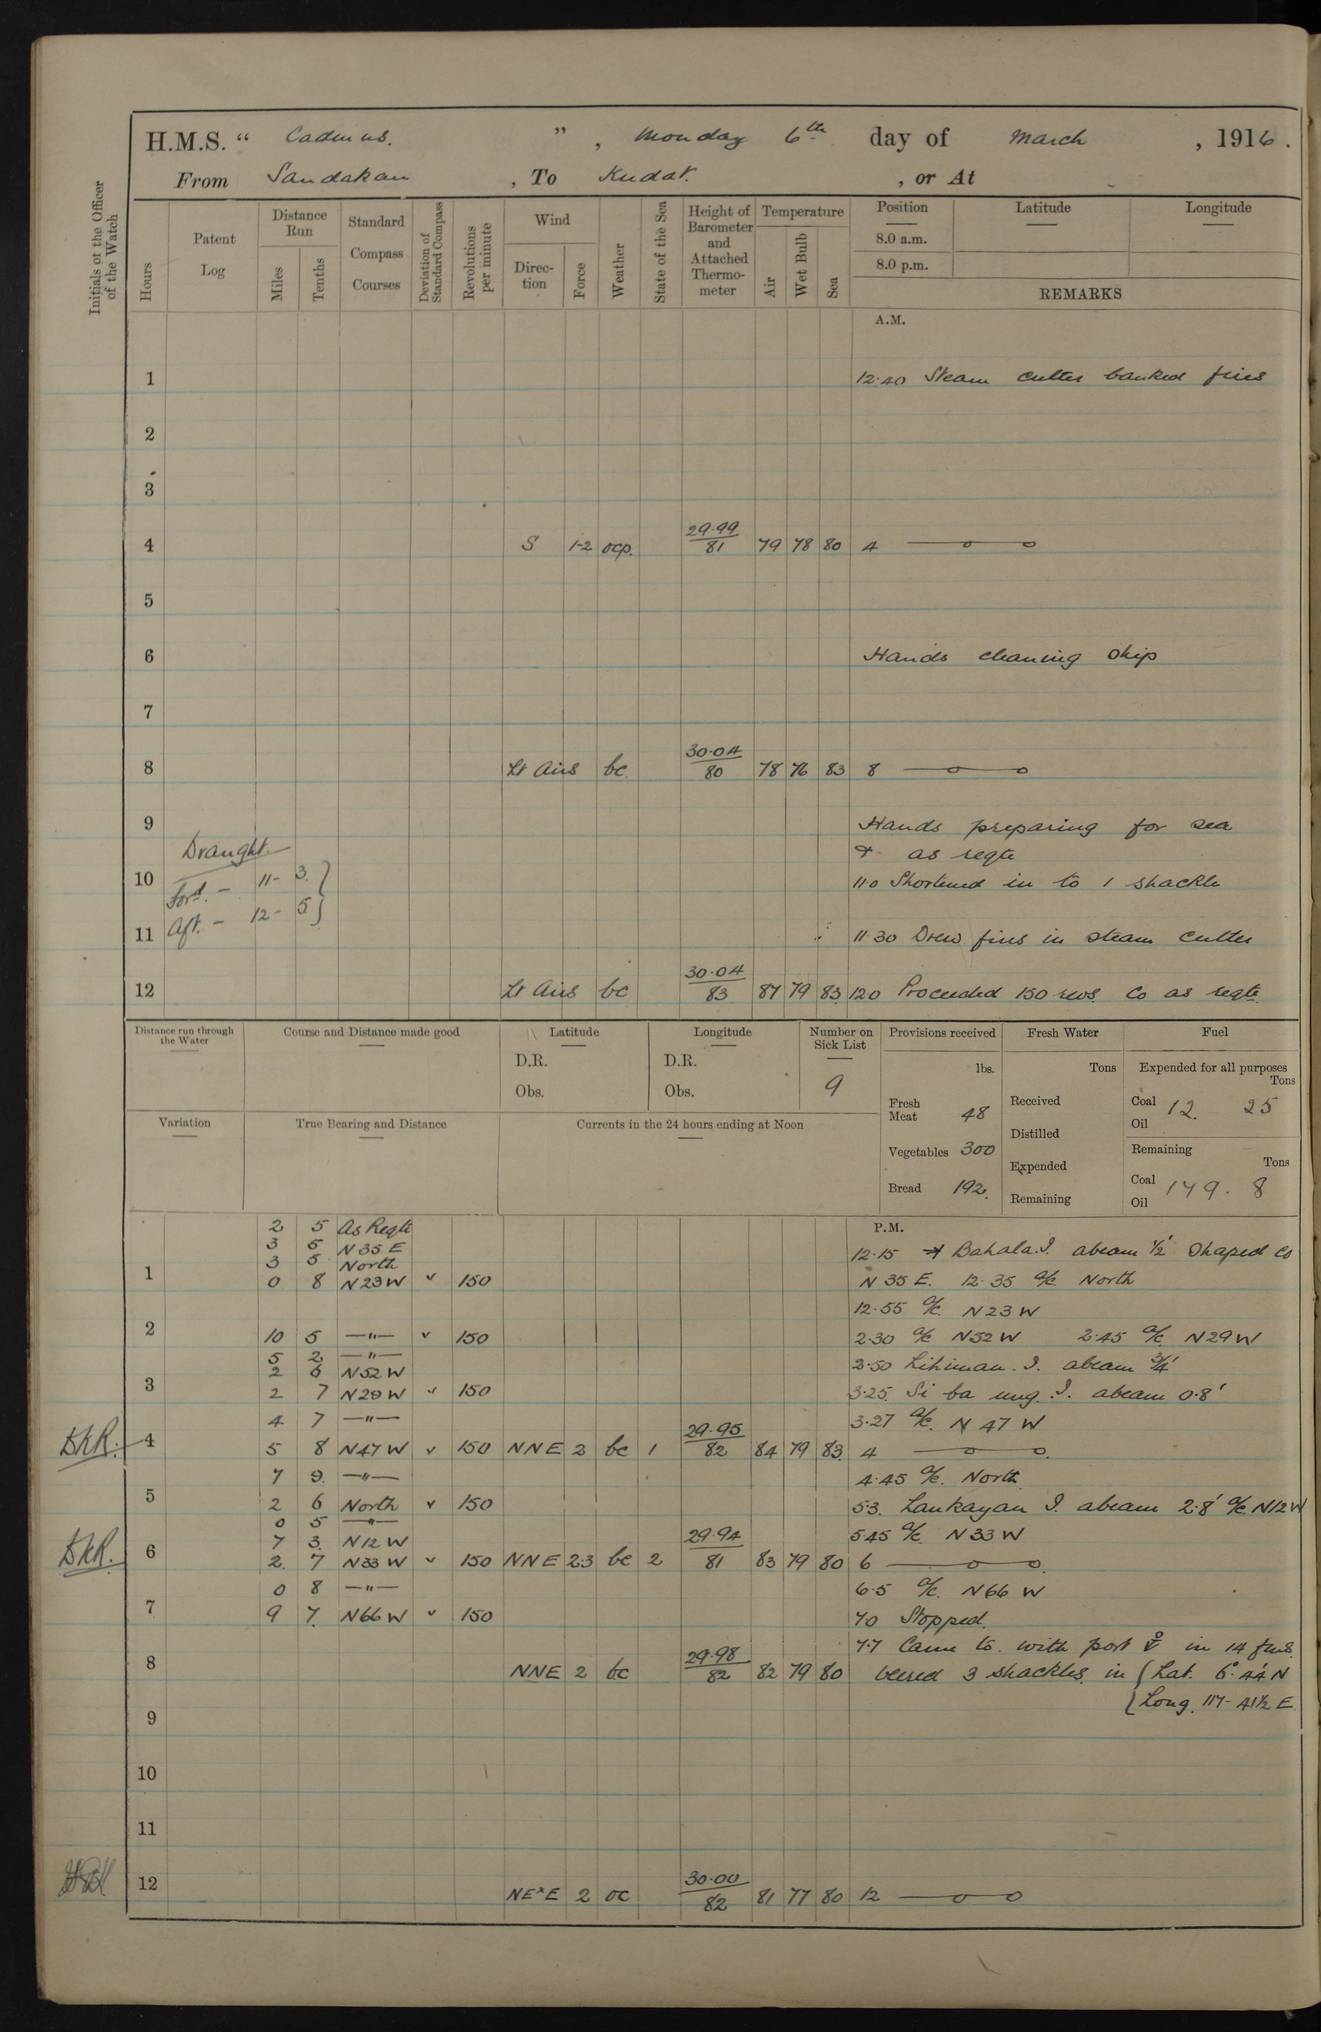 H.M.S. “ Cadmus. ” , Monday 6th day of March , 1916.
From Sandakan , To Kudat. , or At
Initials of the Officer of the Watch
Hours
Patent Log
Distance Run
Miles
Tenths
Standard Compass Courses
Deviation of Standard Compass
Revolutions per minute
Wind
Direc-tion
Force
Weather
State of the Sea
Height of Barometer and Attached Thermo-meter
Temperature
Air
Wet Bulb
Sea
Position Latitude Longitude
8.0 a.m.
8.0 p.m.
REMARKS
A.M.
1 12.40 Steam cutter banked fires
2
3
4 S 1-2 ocp. 29.99/81 79 78 80 4
5
6 Hands cleaning ship
7
8 Lt Airs bc 30.04/80 78 76 83 8
9 Hands preparing for sea
Draught & as reqte
10 Ford. - 11 - 3 11.0 Shortened in to 1 shackle
11 Aft. - 12 - 5 11.30 Drew fires in steam cutter
12 Lt Airs bc 30.04/83 87 79 83 12.0 Proceeded 150 revs Co as reqte
Distance run through the Water
Course and Distance made good
Latitude
D.R.
Obs.
Longitude
D.R.
Obs.
Number on Sick List
9
Provisions received
lbs.
Fresh Meat 48
Vegetables 300
Bread 192.
Fresh Water
Tons
Received
Distilled
Expended
Remaining
Fuel
Expended for all purposes
Tons
Coal 12. 25
Oil
Remaining
Tons
Coal 179. 8
Oil
Variation
True Bearing and Distance
Currents in the 24 hours ending at Noon
P.M.
2 5 As Reqte
3 5 N 35 E 12.15 Bahala. I. abeam ½' Shaped Co
3 5 North
1 0 8 N23W 150 N 35 E. 12.35 a/c North
12.55 a/c N23W
2 10 5 —"— 150 2.30 a/c N52W 2.45 a/c N29W
5 2 —"—
2 6 N52W 2.50 Lihiman. I. abeam ¾'
3 2 7 N29W 150 3.25. Si ba ung. I. abeam 0.8'
4 7 —"— 3.27 a/c. N 47 W
4 5 8 N47W 150 NNE 2 bc 1 29.95/82 84 79 83 4
7 9. —"— 4.45 a/c. North
5 2 6 North 150 5.3. Lankayan I. abeam 2.8' a/c N12W
0 5 —"—
7 3. N12W 5.45 a/c N33W
6 2. 7 N33W 150 NNE 2.3 bc 2 29.94/81 83 79 80 6
0 8 —"— 6.5 a/c. N66W
7 9 7. N66W 150 7.0 Stopped.
7.7 Came to with port ⚓ in 14 fms.
8 NNE 2 bc 29.98/82 82 79 80 veered 3 shackles. in { Lat. 6° 44' N
{ Long. 117 - 41½ E.
9
10
11
12 NE×E 2 oc 30.00/82 81 77 80 12